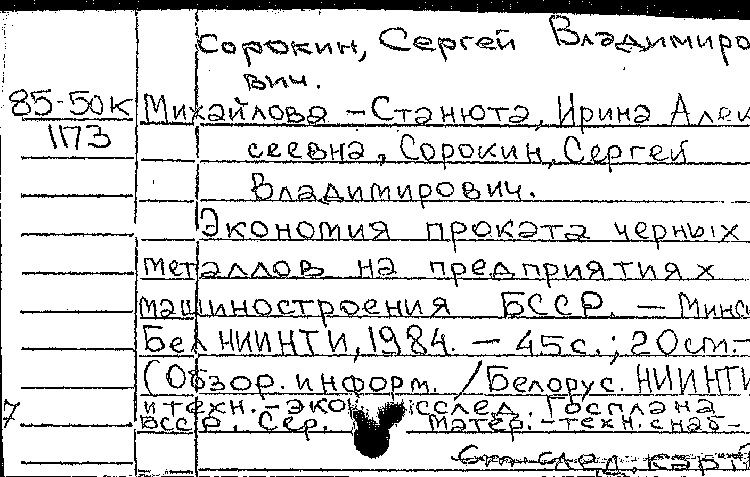 Сорокин, Сергей Владимиро
вич.
85-50к Михайлова-Станюта, Ирина Алек
1173 сеевна, Сорокин, Сергей
Владимирович.
Экономия проката черных
металлов на предприятиях
машиностроения БССР. — Минс
БелНИИНТИ, 1984. — 45с.; 20см.-
(Обзор. информ. / Белорус. НИИНТИ
и техн.-эко исслед. Госплана
7 БССР. Сер. матер.-техн. снаб-
См. след. карт